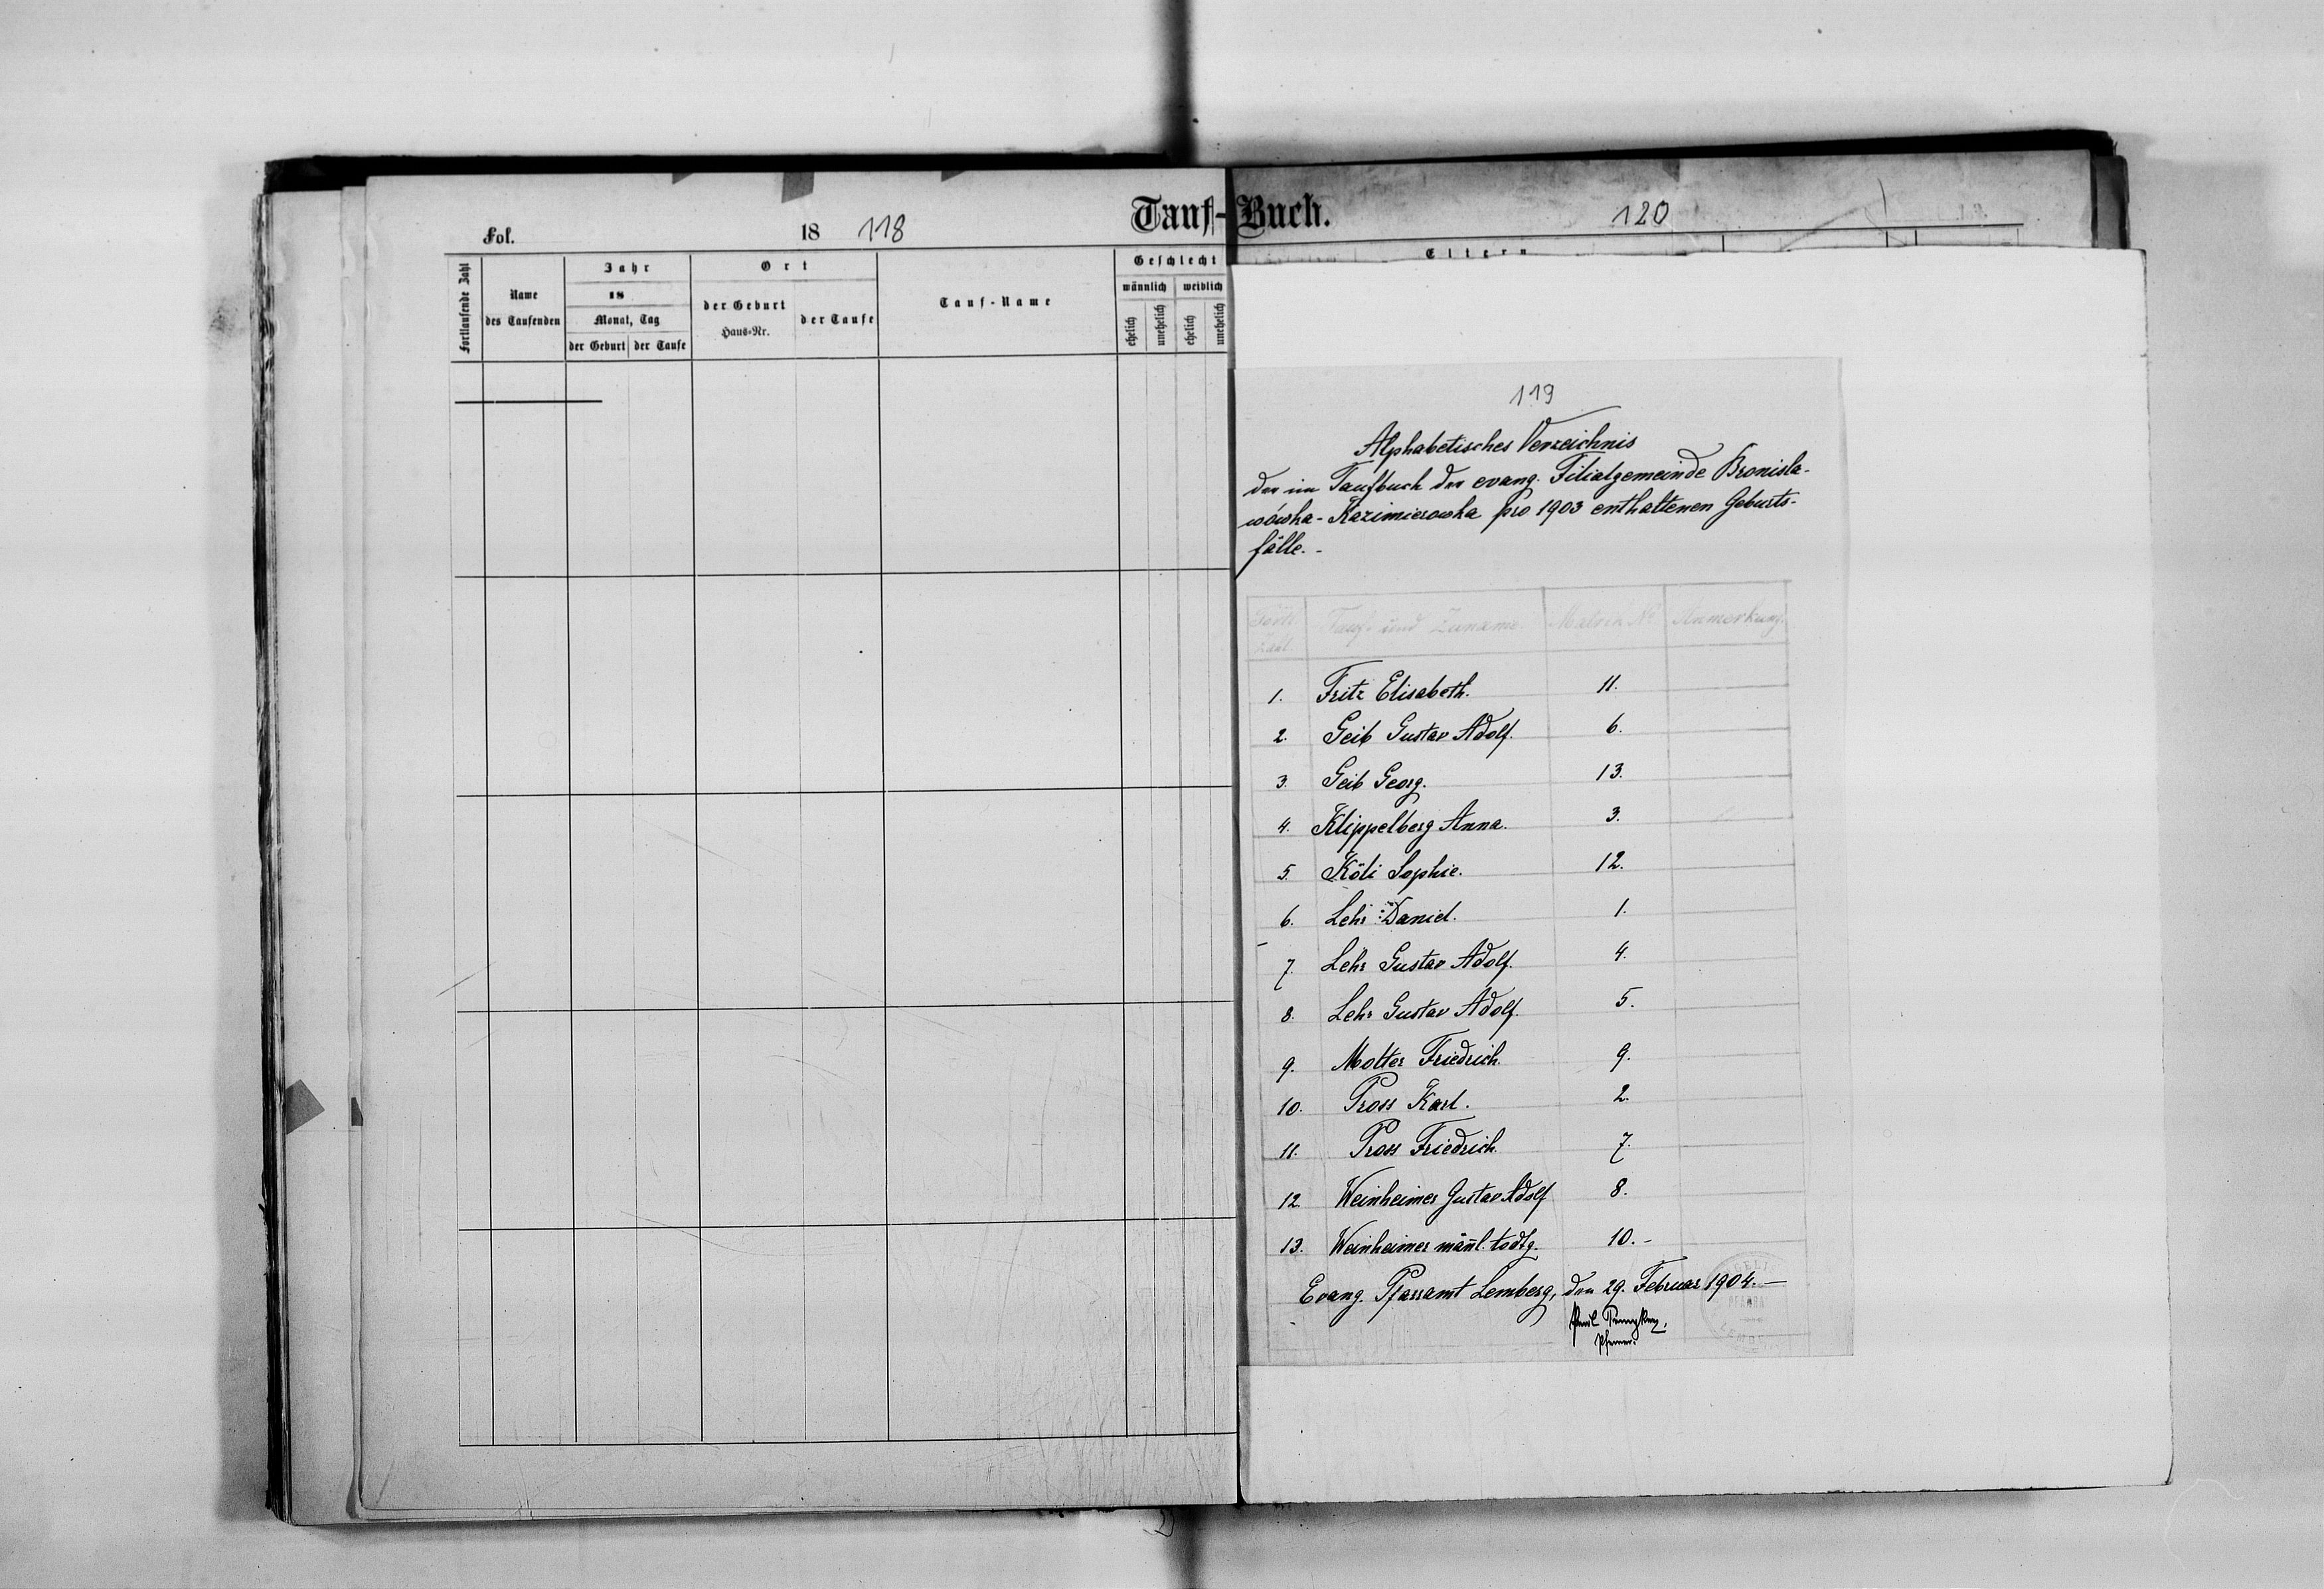 Tauf-Buch.
Fol.
18 118
120
Fortlaufende Zahl
Name
des Taufenden
Jahr
18
Monat, Tag
der Geburt
der Taufe
Ort
der Geburt
Haus-Nr.
der Taufe
Tauf-Name
Geschlecht
männlich
weiblich
ehelich
unehelich
ehelich
unehelich
Eltern
119
Alphabetisches Verzeichnis
der im Taufbuch der evang. Filialgemeinde Bronisla-
wówka-Kazimierowka pro 1903 enthaltenen Geburts-
fälle.-
Fortl. Zahl. Tauf- und Zuname Matrik No Anmerkung.
1. Fritz Elisabeth. 11.
2. Geib Gustav Adolf. 6.
3. Geib Georg. 13.
4. Klippelberg Anna. 3.
5. Köli Sophie. 12.
6. Lehr Daniel. 1.
7. Lehr Gustav Adolf. 4.
8. Lehr Gustav Adolf. 5.
9. Motter Friedrich. 9.
10. Pross Karl. 2.
11. Pross Friedrich. 7.
12. Weinheimer Gustav Adolf 8.
13. Weinheimer männl. todtg. 10.-
Evang. Pfarramt Lemberg, den 29. Februar 1904.-
Pfarrer.